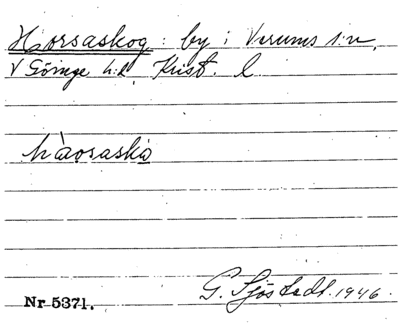 Horsaskog : by i Verums s:n,
V Göinge h:d, Krist. l
hàorsaskò
G. Sjöstedt. 1946.
Nr 5371.